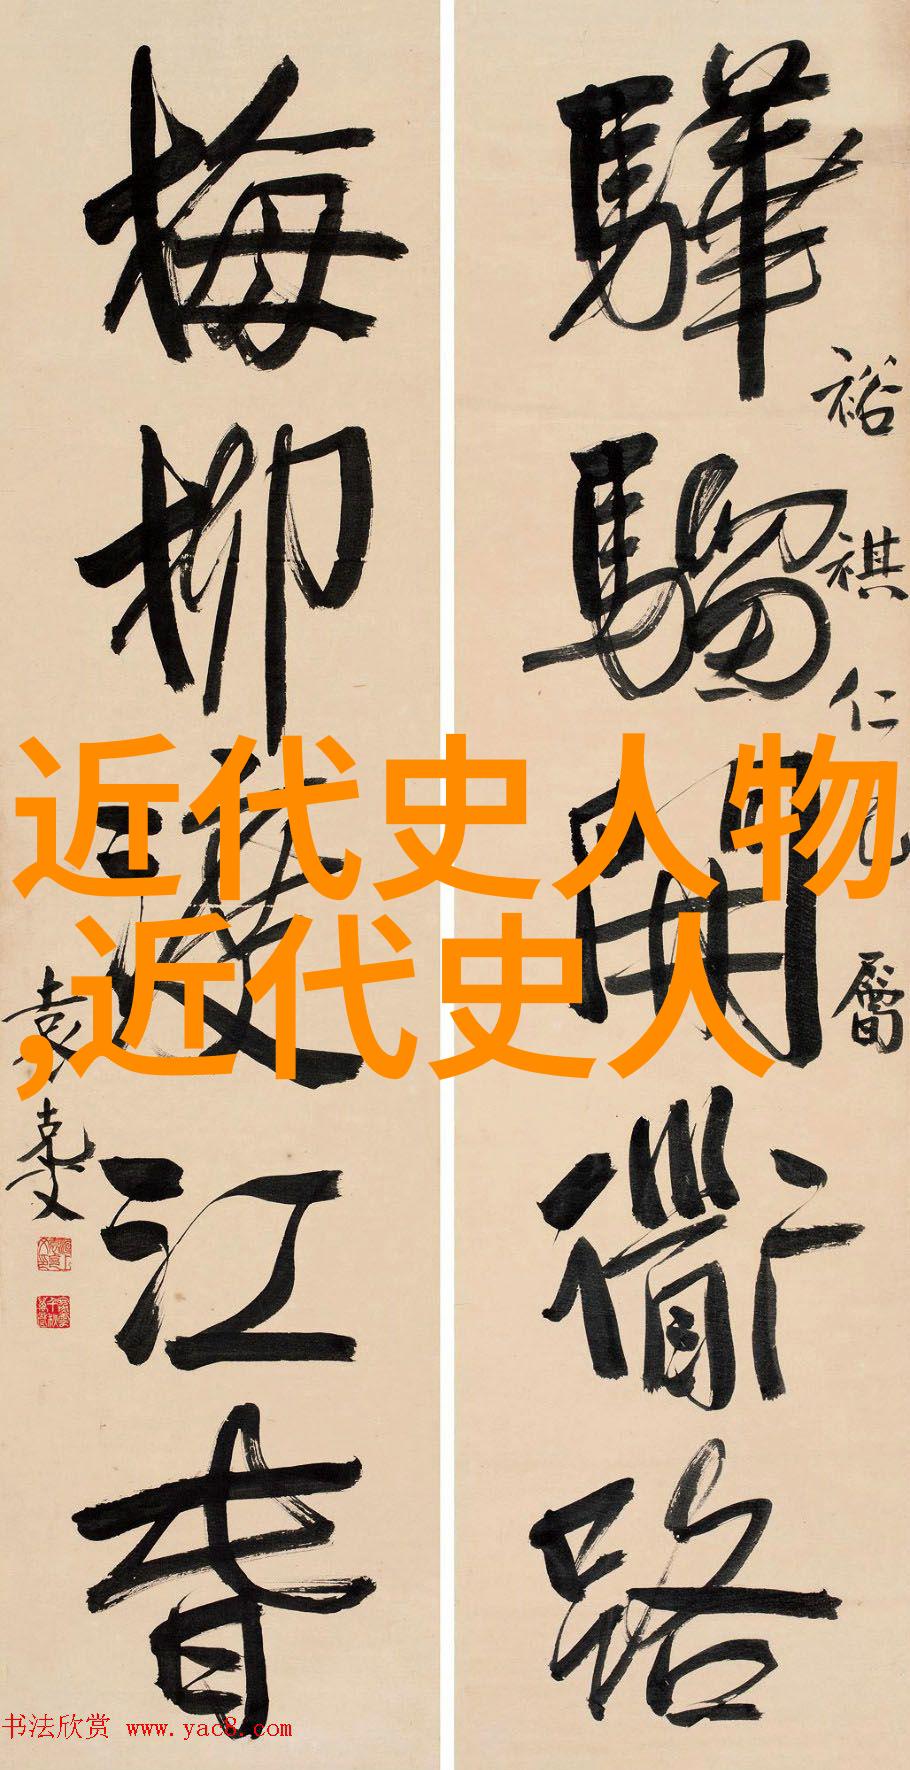 裕祺仁兄屬
驊騮開衜路
梅柳渡江春
袁克文
近代史人物
,近代史人
书法欣赏 www.yac8.com